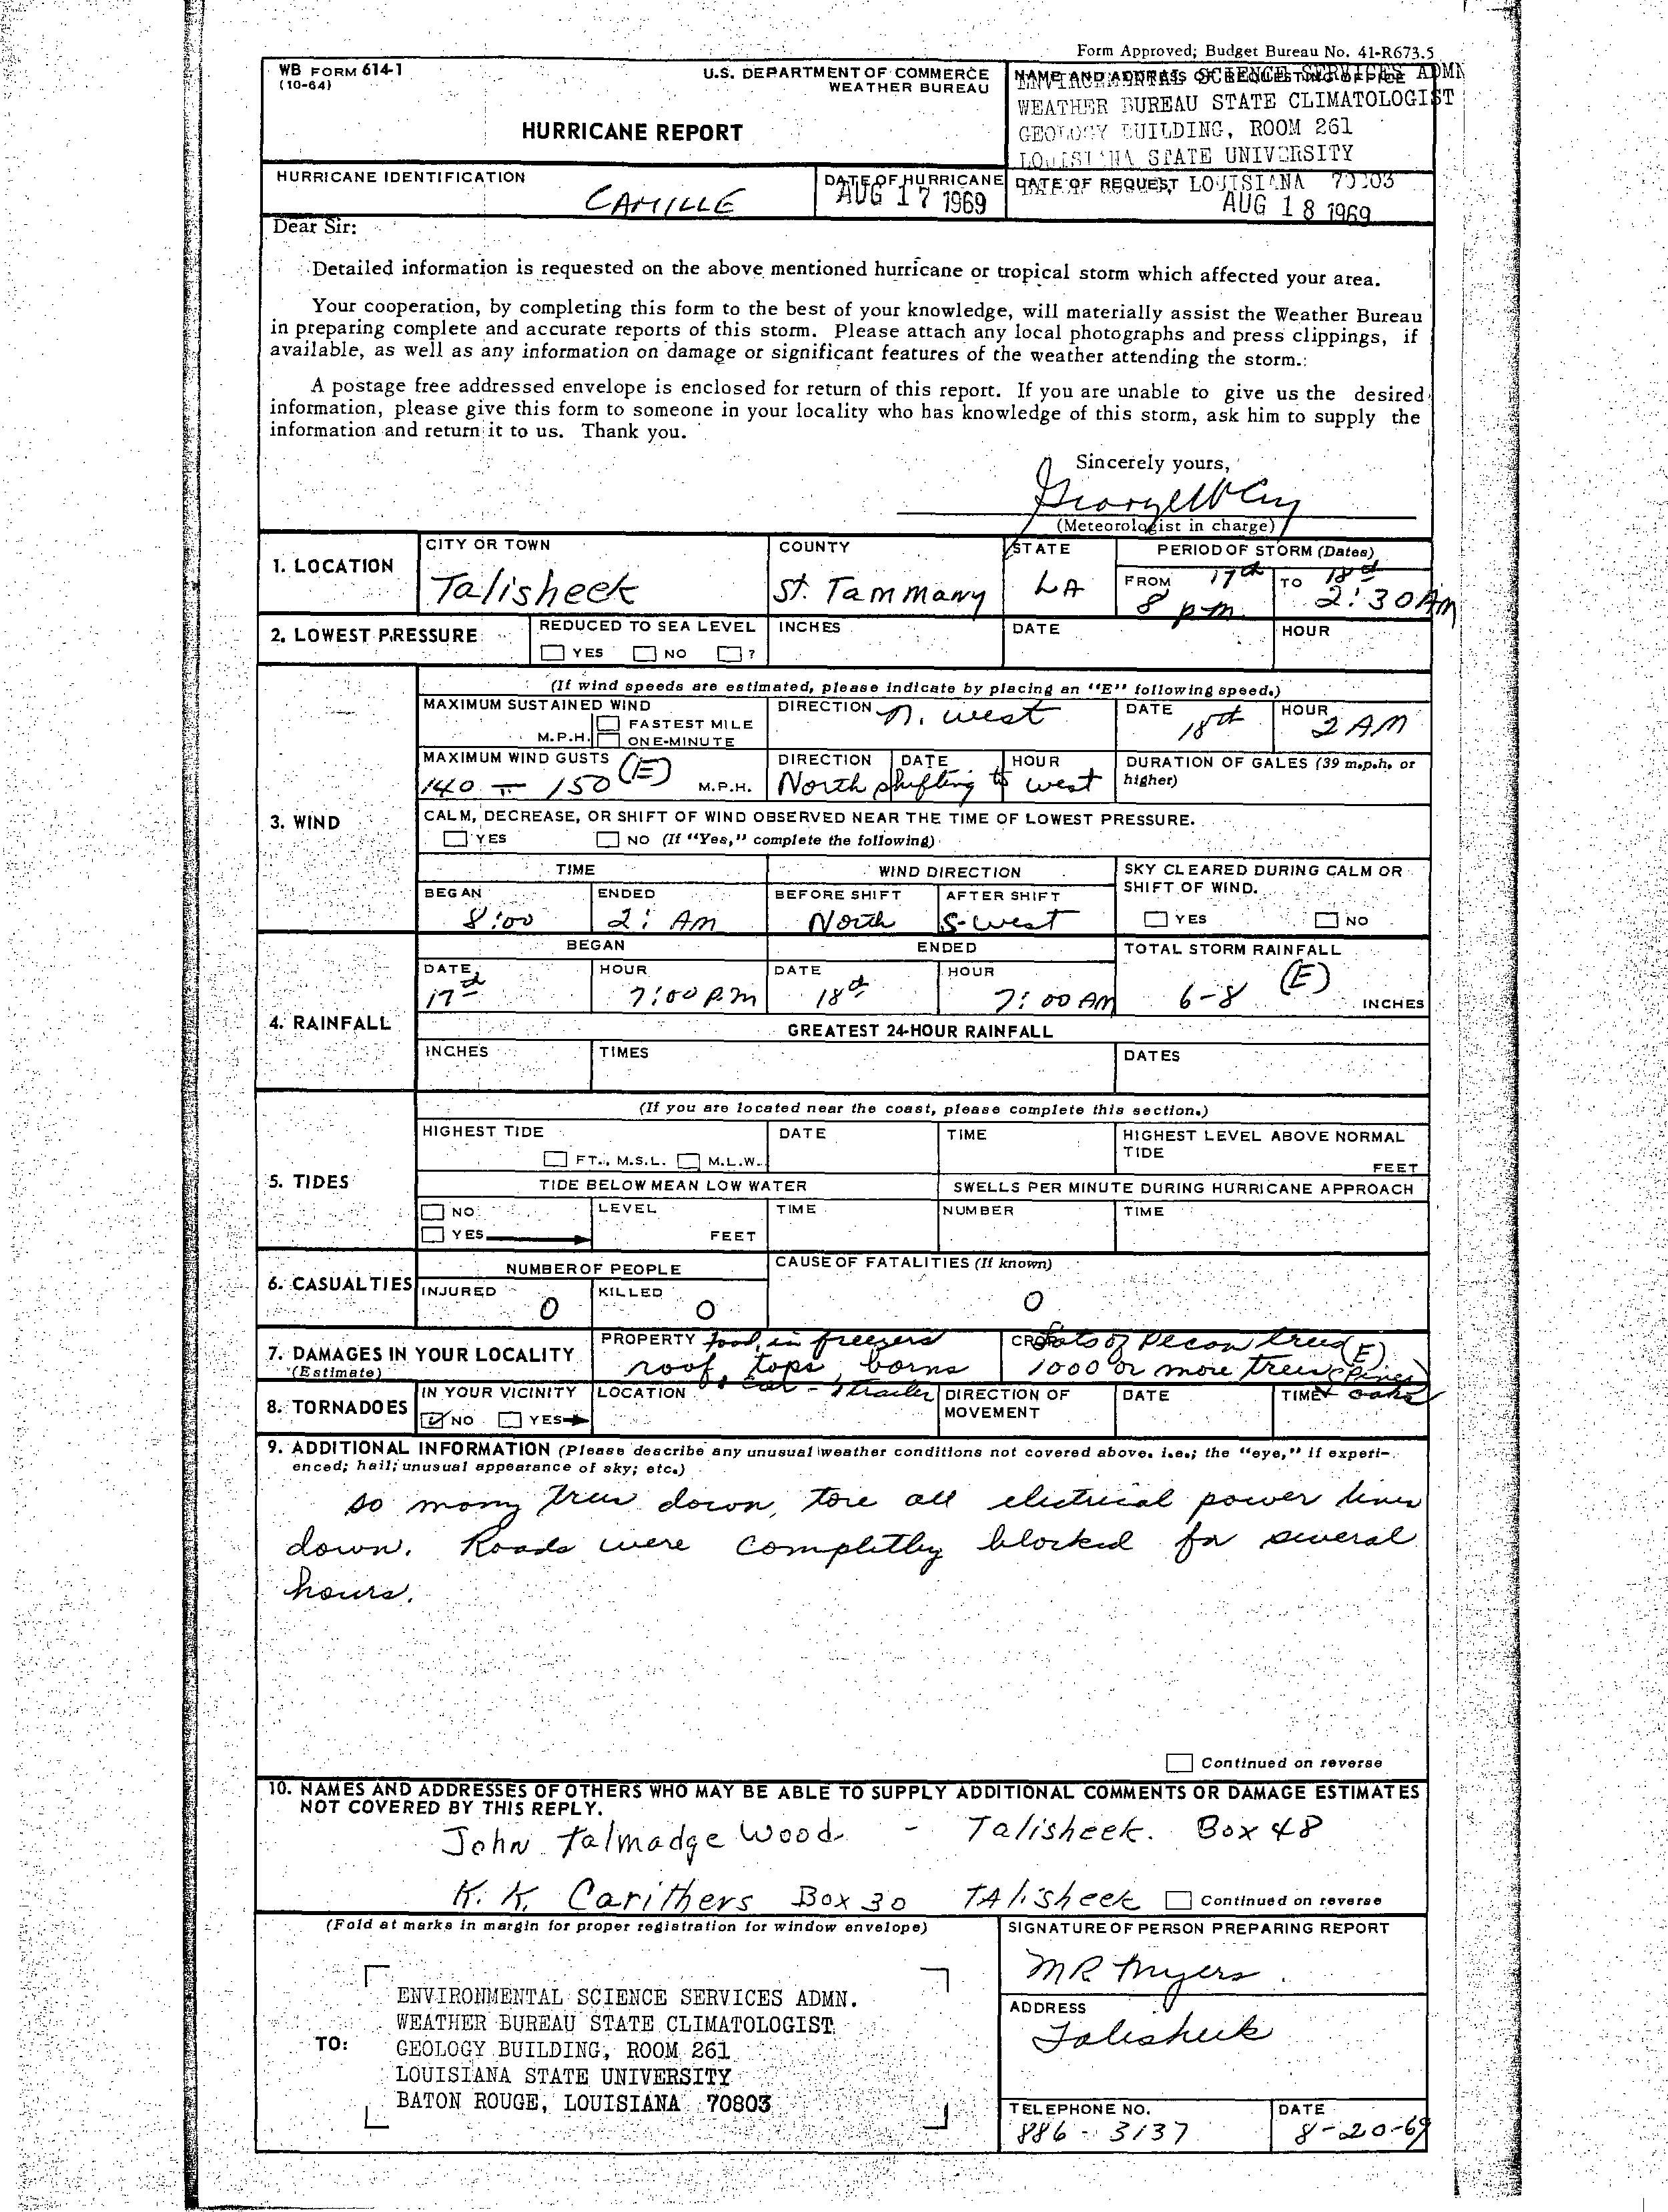 Form Approved; Budget Bureau No. 41-R673.5
WB FORM 614-1
(10-64)
U.S. DEPARTMENT OF COMMERCE
WEATHER BUREAU
HURRICANE REPORT
NAME AND ADDRESS OF REQUESTING OFFICE
SCIENCE SERVICES ADMN
WEATHER BUREAU STATE CLIMATOLOGIST
GEOLOGY BUILDING, ROOM 261
LOUISIANA STATE UNIVERSITY
HURRICANE IDENTIFICATION
CAMILLE
DATE OF HURRICANE
AUG 17 1969
DATE OF REQUEST
LOUISIANA 70803
AUG 18 1969
Dear Sir:
Detailed information is requested on the above mentioned hurricane or tropical storm which affected your area.
Your cooperation, by completing this form to the best of your knowledge, will materially assist the Weather Bureau
in preparing complete and accurate reports of this storm. Please attach any local photographs and press clippings, if
available, as well as any information on damage or significant features of the weather attending the storm.:
A postage free addressed envelope is enclosed for return of this report. If you are unable to give us the desired
information, please give this form to someone in your locality who has knowledge of this storm, ask him to supply the
information and return it to us. Thank you.
Sincerely yours,
(Meteorologist in charge)
1. LOCATION
CITY OR TOWN
Talisheek
COUNTY
St. Tammany
STATE
LA
PERIOD OF STORM (Dates)
FROM 17th
8 pm
TO 18th
2:30 AM
2. LOWEST PRESSURE
REDUCED TO SEA LEVEL
YES NO ?
INCHES
DATE
HOUR
3. WIND
(If wind speeds are estimated, please indicate by placing an "E" following speed.)
MAXIMUM SUSTAINED WIND
M.P.H.
FASTEST MILE
ONE-MINUTE
DIRECTION n. west
DATE
18th
HOUR
2 AM
MAXIMUM WIND GUSTS
140 - 150 (E) M.P.H.
DIRECTION DATE HOUR
North shifting to west
DURATION OF GALES (39 m.p.h. or
higher)
CALM, DECREASE, OR SHIFT OF WIND OBSERVED NEAR THE TIME OF LOWEST PRESSURE.
YES NO (If "Yes," complete the following)
TIME
WIND DIRECTION
SKY CLEARED DURING CALM OR
SHIFT OF WIND.
YES NO
BEGAN
8:00
ENDED
2: AM
BEFORE SHIFT
North
AFTER SHIFT
S-west
4. RAINFALL
BEGAN
ENDED
TOTAL STORM RAINFALL
6-8 (E) INCHES
DATE
17th
HOUR
7:00 P.m
DATE
18th
HOUR
7:00 AM
GREATEST 24-HOUR RAINFALL
INCHES
TIMES
DATES
5. TIDES
(If you are located near the coast, please complete this section.)
HIGHEST TIDE
FT., M.S.L. M.L.W.
DATE
TIME
HIGHEST LEVEL ABOVE NORMAL
TIDE
FEET
TIDE BELOW MEAN LOW WATER
SWELLS PER MINUTE DURING HURRICANE APPROACH
NO
YES
LEVEL
FEET
TIME
NUMBER
TIME
6. CASUALTIES
NUMBER OF PEOPLE
INJURED
0
KILLED
0
CAUSE OF FATALITIES (If known)
0
7. DAMAGES IN YOUR LOCALITY
(Estimate)
PROPERTY food in freezers
roof tops barns
car - trailer
CROPS Lots of Pecan trees (E)
1000 or more trees Pines
& oaks
8. TORNADOES
IN YOUR VICINITY
NO YES
LOCATION
DIRECTION OF
MOVEMENT
DATE
TIME
9. ADDITIONAL INFORMATION (Please describe any unusual weather conditions not covered above. i.e.; the "eye," if experi-
enced; hail; unusual appearance of sky; etc.)
so many trees down, tore all electrical power lines
down. Roads were completley blocked for several
hours.
Continued on reverse
10. NAMES AND ADDRESSES OF OTHERS WHO MAY BE ABLE TO SUPPLY ADDITIONAL COMMENTS OR DAMAGE ESTIMATES
NOT COVERED BY THIS REPLY.
John Talmadge Wood - Talisheek. Box 48
K. K. Carithers Box 30 TAlisheek
Continued on reverse
(Fold at marks in margin for proper registration for window envelope)
TO:
ENVIRONMENTAL SCIENCE SERVICES ADMN.
WEATHER BUREAU STATE CLIMATOLOGIST
GEOLOGY BUILDING, ROOM 261
LOUISIANA STATE UNIVERSITY
BATON ROUGE, LOUISIANA 70803
SIGNATURE OF PERSON PREPARING REPORT
MR Myers
ADDRESS
Talisheek
TELEPHONE NO.
886-3137
DATE
8-20-69